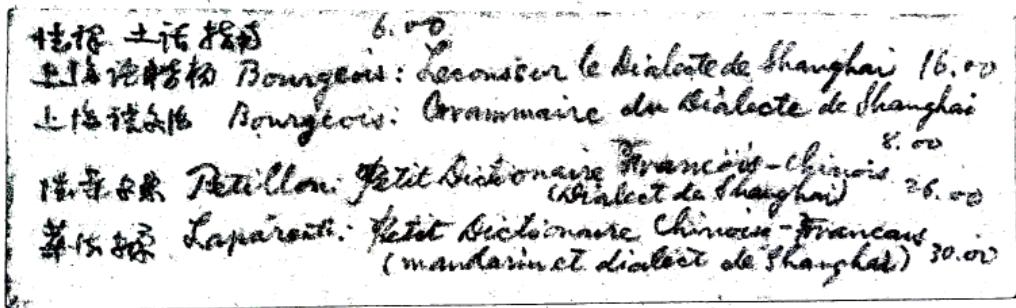 土话指南 6.00
上海话 Bourgeois: Lecons sur le Dialecte de Shanghai 16.00
上海话文法 Bourgeois: Grammaire du Dialecte de Shanghai
8.00
Petillon: Petit Dictionaire Francois-Chinois
(Dialect de Shanghai) 26.00
Petit Dictionaire Chinois-Francais
(mandarin et dialect de Shanghai) 30.00